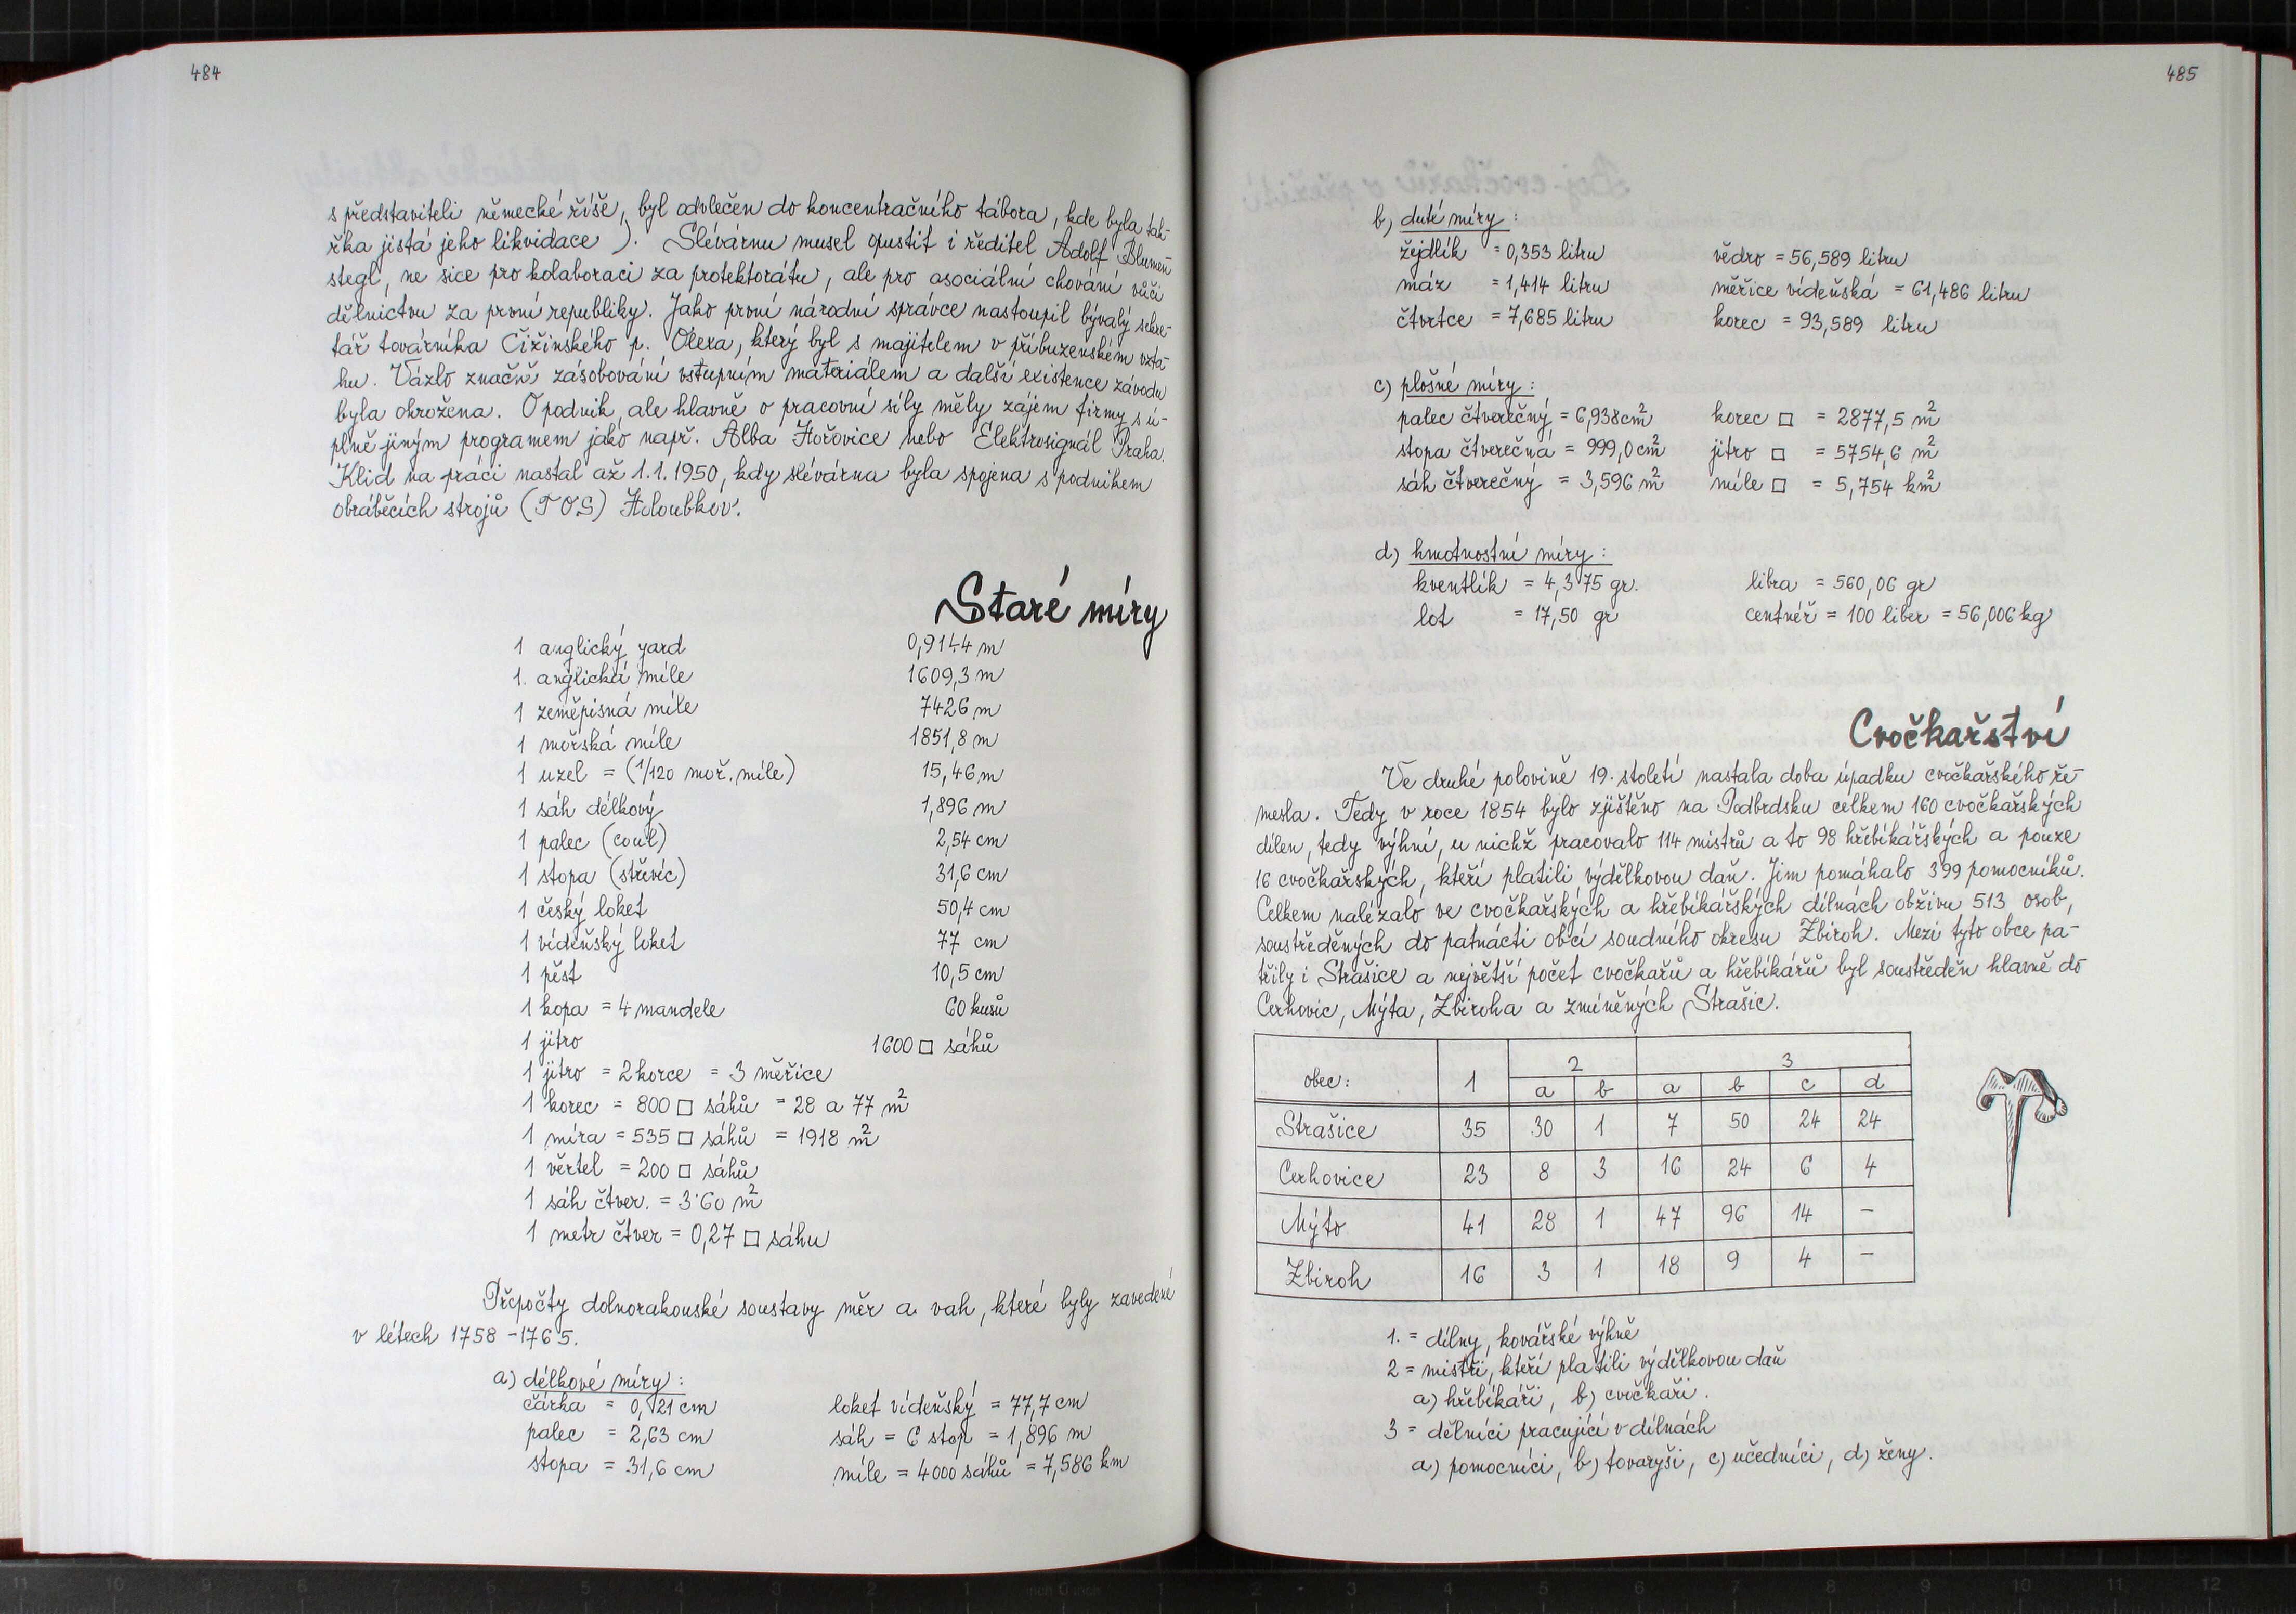 484
s představiteli německé říše, byl odvlečen do koncentračního tábora, kde byla tak-
řka jistá jeho likvidace ). Slévárnu musel opustit i ředitel Adolf Blumen
stegl, ne sice pro kolaboraci za protektorátu, ale pro asociální chování vůči
dělnictvu za první republiky. Jako první národní správce nastoupil bývalý sekre-
tář továrníka Čižinského p. Olexa, který byl s majitelem v příbuzenském vzta-
hu. Vázlo značně zásobování vstupním materiálem a další existence závodu
byla ohrožena. O podnik, ale hlavně o pracovní síly měly zájem firmy s ú-
plně jiným programem jako např. Alba Hořovice nebo Elektrosignál Praha.
Klid na práci nastal až 1.1.1950, kdy slévárna byla spojena s podnikem
obráběcích strojů (TOS) Holoubkov.
Staré míry
1 anglický yard 0,9144 m
1. anglická míle 1609,3 m
1 zeměpisná míle 7426 m
1 mořská míle 1851,8 m
1 uzel = (1/120 moř. míle) 15,46 m
1 sáh délkový 1,896 m
1 palec (coul) 2,54 cm
1 stopa (střevíc) 31,6 cm
1 český loket 50,4 cm
1 vídeňský loket 77 cm
1 pěst 10,5 cm
1 kopa = 4 mandele 60 kusů
1 jitro 1600 □ sáhů
1 jitro = 2 korce = 3 měřice
1 korec = 800 □ sáhů = 28 a 77 m²
1 míra = 535 □ sáhů = 1918 m²
1 věrtel = 200 □ sáhů
1 sáh čtver. = 3˙60 m²
1 metr čtver = 0,27 □ sáhu
Přepočty dolnorakouské soustavy měr a vah, které byly zavedené
v létech 1758 - 1765.
a) délkové míry :
čárka = 0,121 cm loket vídeňský = 77,7 cm
palec = 2,63 cm sáh = 6 stop = 1,896 m
stopa = 31,6 cm míle = 4000 sáhů = 7,586 km
485
b) duté míry :
žejdlík = 0,353 litru vědro = 56,589 litru
máz = 1,414 litru měřice vídeňská = 61,486 litru
čtvrtce = 7,685 litru korec = 93,589 litru
c) plošné míry :
palec čtverečný = 6,938 cm² korec □ = 2877,5 m²
stopa čtverečná = 999,0 cm² jitro □ = 5754,6 m²
sáh čtverečný = 3,596 m² míle □ = 5,754 km²
d) hmotnostní míry :
kventlík = 4,375 gr. libra = 560,06 gr
lot = 17,50 gr centnéř = 100 liber = 56,006 kg
Cvočkařství
Ve druhé polovině 19. století nastala doba úpadku cvočkařského ře-
mesla. Tedy v roce 1854 bylo zjištěno na Podbrdsku celkem 160 cvočkařských
dílen, tedy výhní, u nichž pracovalo 114 mistrů a to 98 hřebíkářských a pouze
16 cvočkařských, kteří platili výdělkovou daň. Jim pomáhalo 399 pomocníků.
Celkem nalézalo ve cvočkařských a hřebíkářských dílnách obživu 513 osob,
soustředěných do patnácti obcí soudního okresu Zbiroh. Mezi tyto obce pa-
třily i Strašice a největší počet cvočkařů a hřebíkářů byl soustředěn hlavně do
Cerhovic, Mýta, Zbiroha a zmíněných Strašic.
obec: 1 2 3
a b a b c d
Strašice 35 30 1 7 50 24 24
Cerhovice 23 8 3 16 24 6 4
Mýto 41 28 1 47 96 14 -
Zbiroh 16 3 1 18 9 4 -
1. = dílny, kovářské výhně
2 = mistři, kteří platili výdělkovou daň
a) hřebíkáři, b) cvočkaři.
3 = dělníci pracující v dílnách
a) pomocníci, b) tovaryši, c) učedníci, d) ženy.